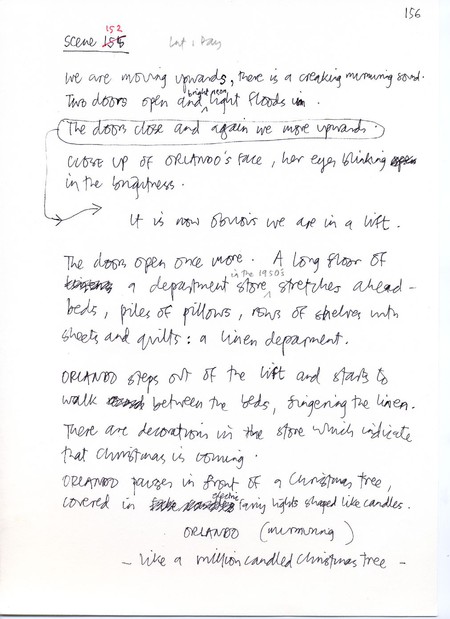 156
152
Scene 155 Int: Day
We are moving upwards, there is a creaking murmuring sound.
bright neon
Two doors open and light floods in.
The doors close and again we move upwards.
CLOSE UP OF ORLANDO'S FACE, her eyes blinking
in the brightness.
It is now obvious we are in a lift.
The doors open once more. A long floor of
in the 1950's
a department store stretches ahead -
beds, piles of pillows, rows of shelves with
sheets and quilts: a linen deparment.
ORLANDO steps out of the lift and starts to
walk between the beds, fingering the linen.
There are decorations in the store which indicate
that Christmas is coming.
ORLANDO pauses in front of a Christmas tree,
electric
covered in fairy lights shaped like candles.
ORLANDO (murmuring)
- Like a million candled Christmas tree -